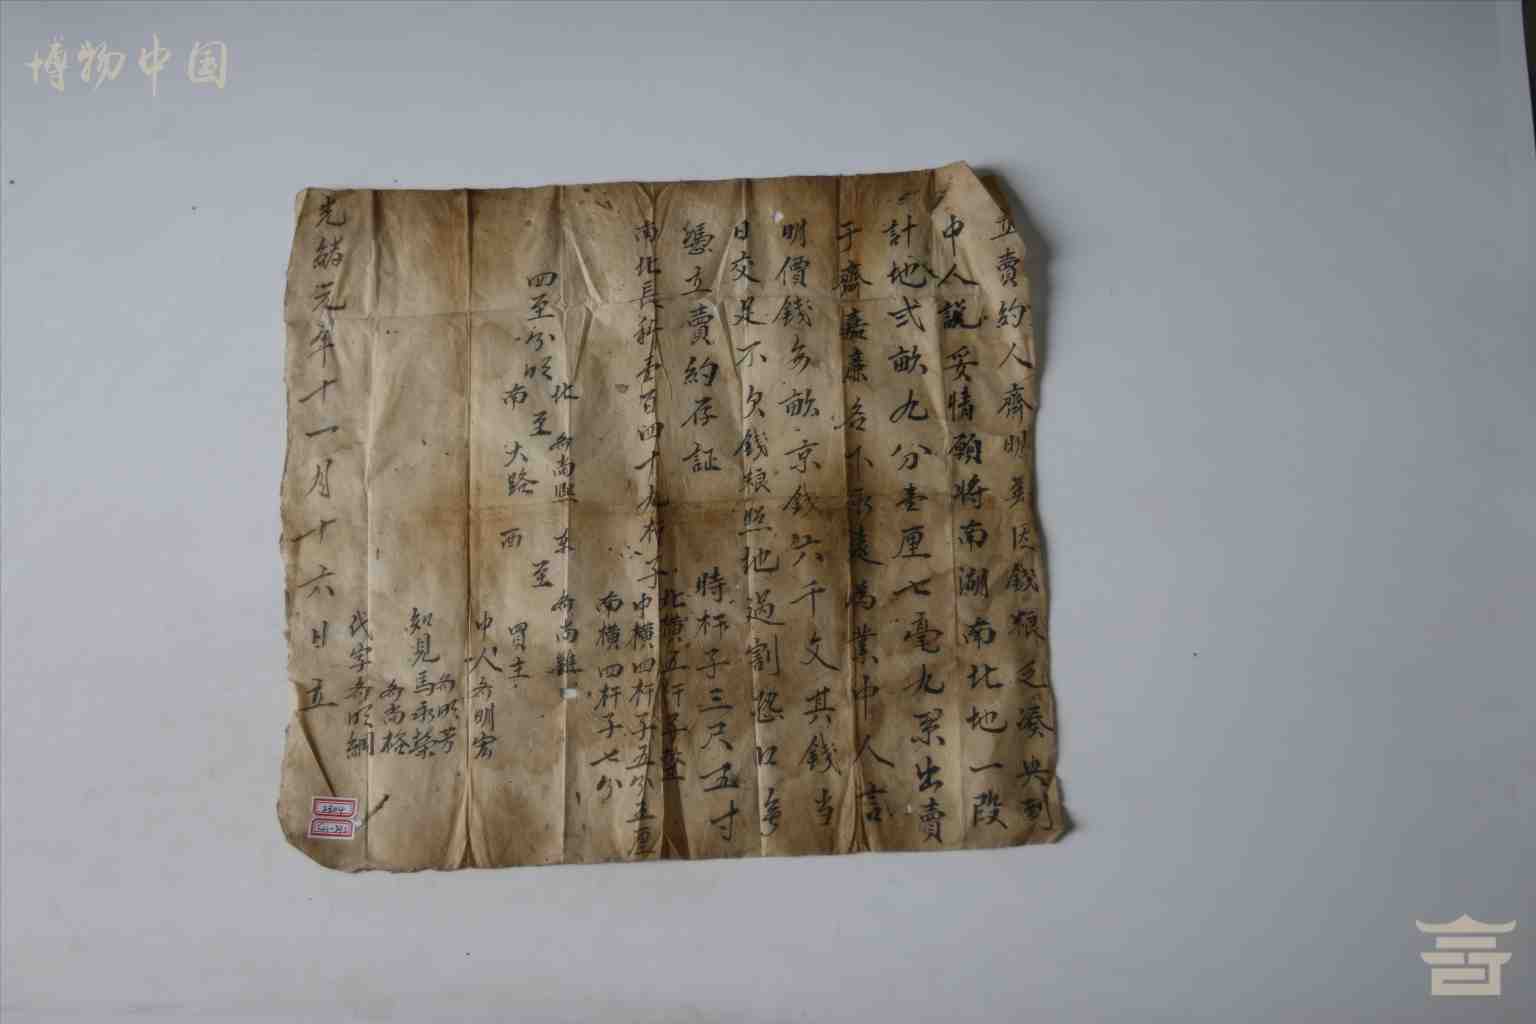 博物中国
立賣約人齊明美因錢糧乏湊央到
中人説妥情願将南湖南北地一段
計地弍畝九分壹厘七毫九系出賣
于齊嘉廉名下永遠為業中人言
明價錢每畝京錢六千文其錢当
日交足不欠錢糧照地過割恐口無
憑立賣約存証
時杆子三尺五寸
南北長科壹百四十九杆子
北横五杆子整
中横四杆子五分五厘
南横四杆子七分
四至分明
北至齐尚照
南至大路
東至齐尚
西至買主
中人齐明宏
知見
齐明芳
馬永榮
齐尚格
代字齐明綱
光緒元年十一月十六日立
2304